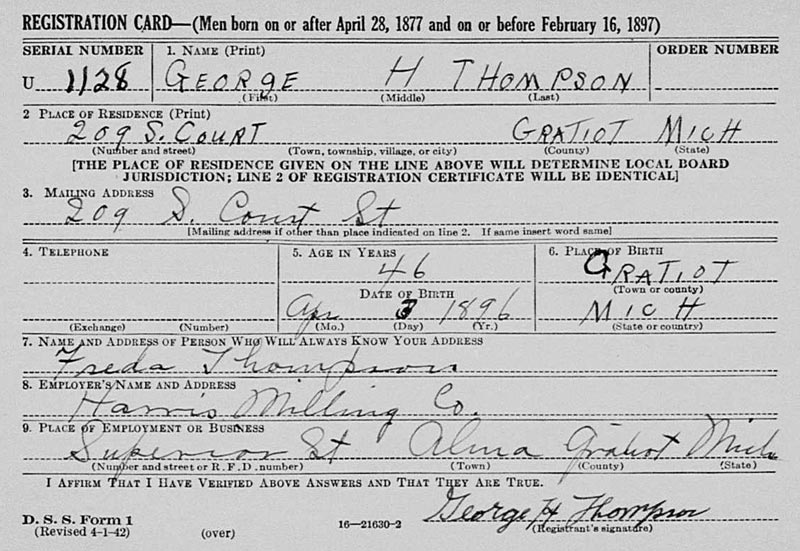 REGISTRATION CARD—(Men born on or after April 28, 1877 and on or before February 16, 1897)
SERIAL NUMBER 1. NAME (Print) ORDER NUMBER
U 1128 GEORGE H THOMPSON
(First) (Middle) (Last)
2 PLACE OF RESIDENCE (Print)
209 S. COURT GRATIOT MICH
(Number and street) (Town, township, village, or city) (County) (State)
[THE PLACE OF RESIDENCE GIVEN ON THE LINE ABOVE WILL DETERMINE LOCAL BOARD
JURISDICTION; LINE 2 OF REGISTRATION CERTIFICATE WILL BE IDENTICAL]
3. MAILING ADDRESS
209 S. Court St
[Mailing address if other than place indicated on line 2. If same insert word same]
4. TELEPHONE 5. AGE IN YEARS 6. PLACE OF BIRTH
46 GRATIOT
(Town or county)
DATE OF BIRTH
Apr 3 1896 MICH
(Exchange) (Number) (Mo.) (Day) (Yr.) (State or country)
7. NAME AND ADDRESS OF PERSON WHO WILL ALWAYS KNOW YOUR ADDRESS
Freda Thompson
8. EMPLOYER'S NAME AND ADDRESS
Harris Milling Co.
9. PLACE OF EMPLOYMENT OR BUSINESS
Superior St Alma Gratiot Mich
(Number and street or R. F. D. number) (Town) (County) (State)
I AFFIRM THAT I HAVE VERIFIED ABOVE ANSWERS AND THAT THEY ARE TRUE.
George H Thompson
D. S. S. Form 1 16—21630-2 (Registrant's signature)
(Revised 4-1-42) (over)